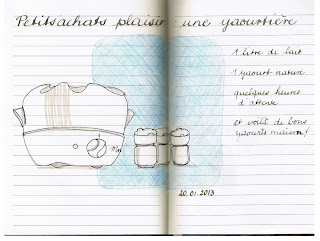 Petits achats plaisir : une yaourtière
1 litre de lait
1 yaourt nature
quelques heures
d'attente
et voilà de bons
yaourts maison!
20.01.2013